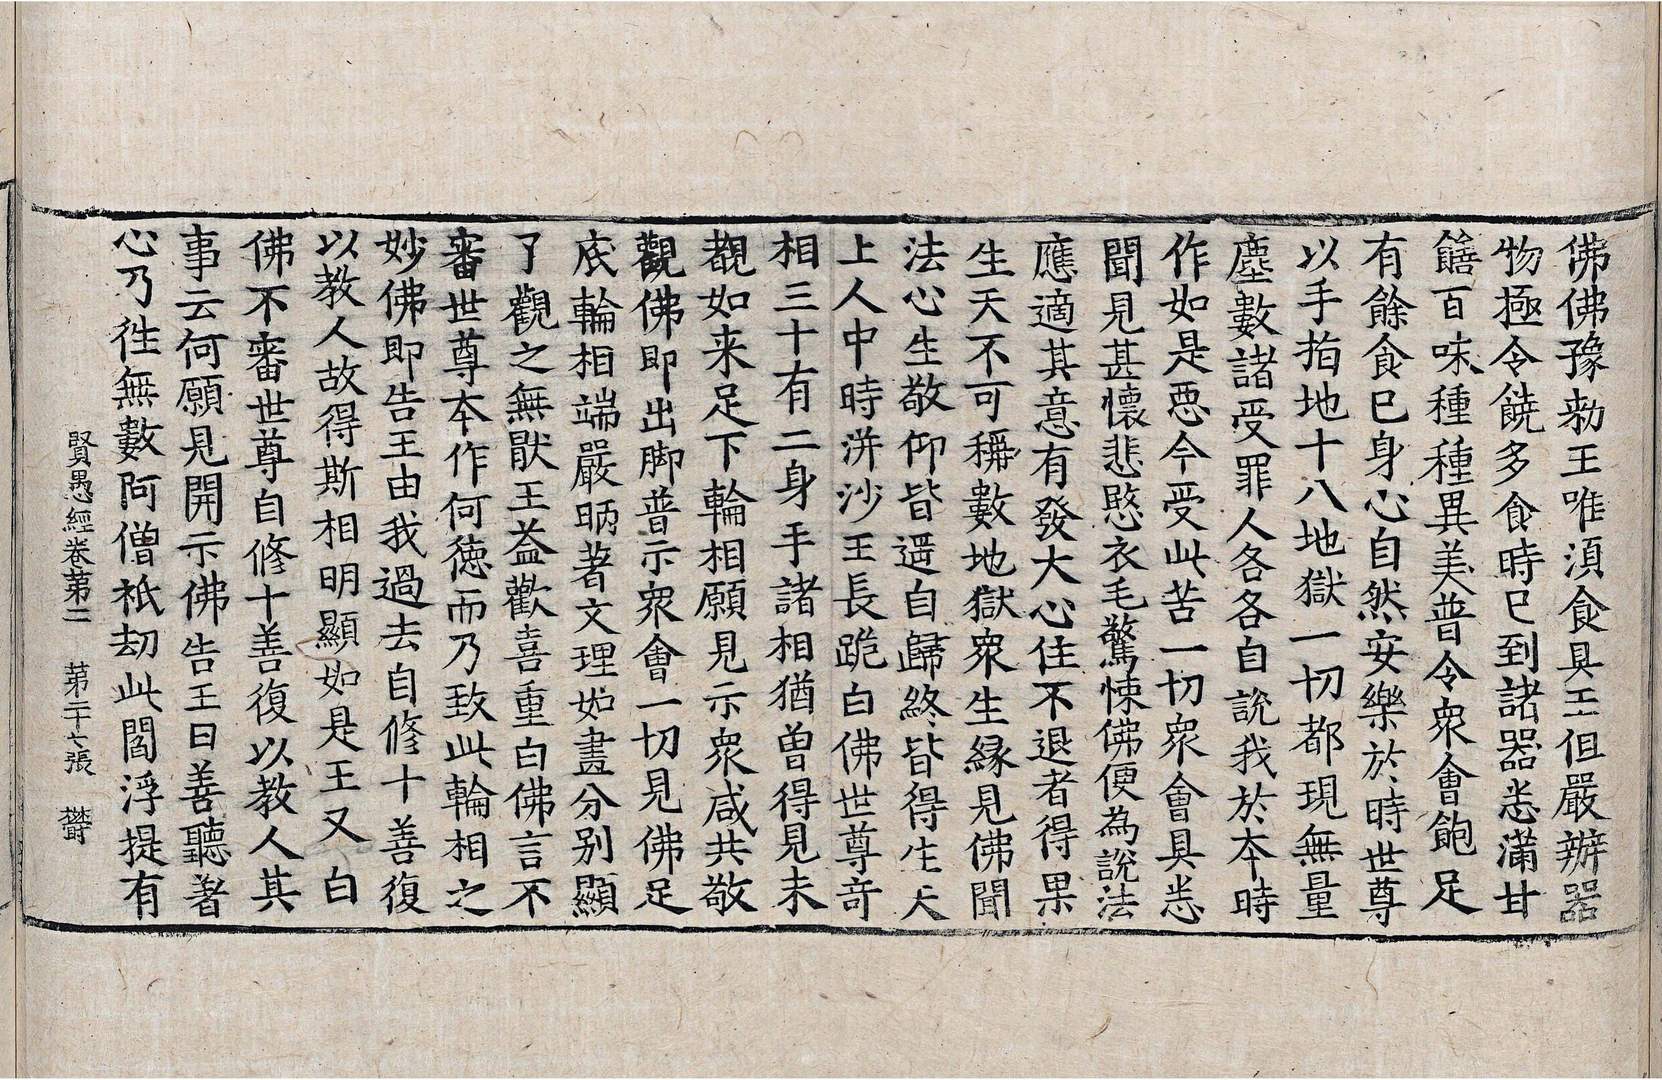 佛佛豫勑王唯湏食具王但嚴辦器
物極令饒多食時已到諸器悉滿甘
饍百味種種異美普令衆會飽足
有餘食已身心自然安樂於時世尊
以手指地十八地獄一切都現無量
塵數諸受罪人各各自說我於本時
作如是惡今受此苦一切衆會具悉
聞見甚懷悲愍衣毛驚悚佛便為說法
應適其意有發大心住不退者得果
生天不可稱數地獄衆生緣見佛聞
法心生敬仰皆還自歸終皆得生天
上人中時洴沙王長跪白佛世尊竒
相三十有二身手諸相猶曾得見未
覩如来足下輪相願見示衆咸共敬
觀佛即出脚普示衆會一切見佛足
底輪相端嚴昞著文理如畫分别顯
了觀之無猒王益歡喜重白佛言不
審世尊本作何徳而乃致此輪相之
妙佛即告王由我過去自修十善復
以教人故得斯相明顯如是王又白
佛不審世尊自修十善復以教人其
事云何願見開示佛告王曰善聽著
心乃往無數阿僧祇劫此閻浮提有
賢愚經卷第二 第二十七張 欝